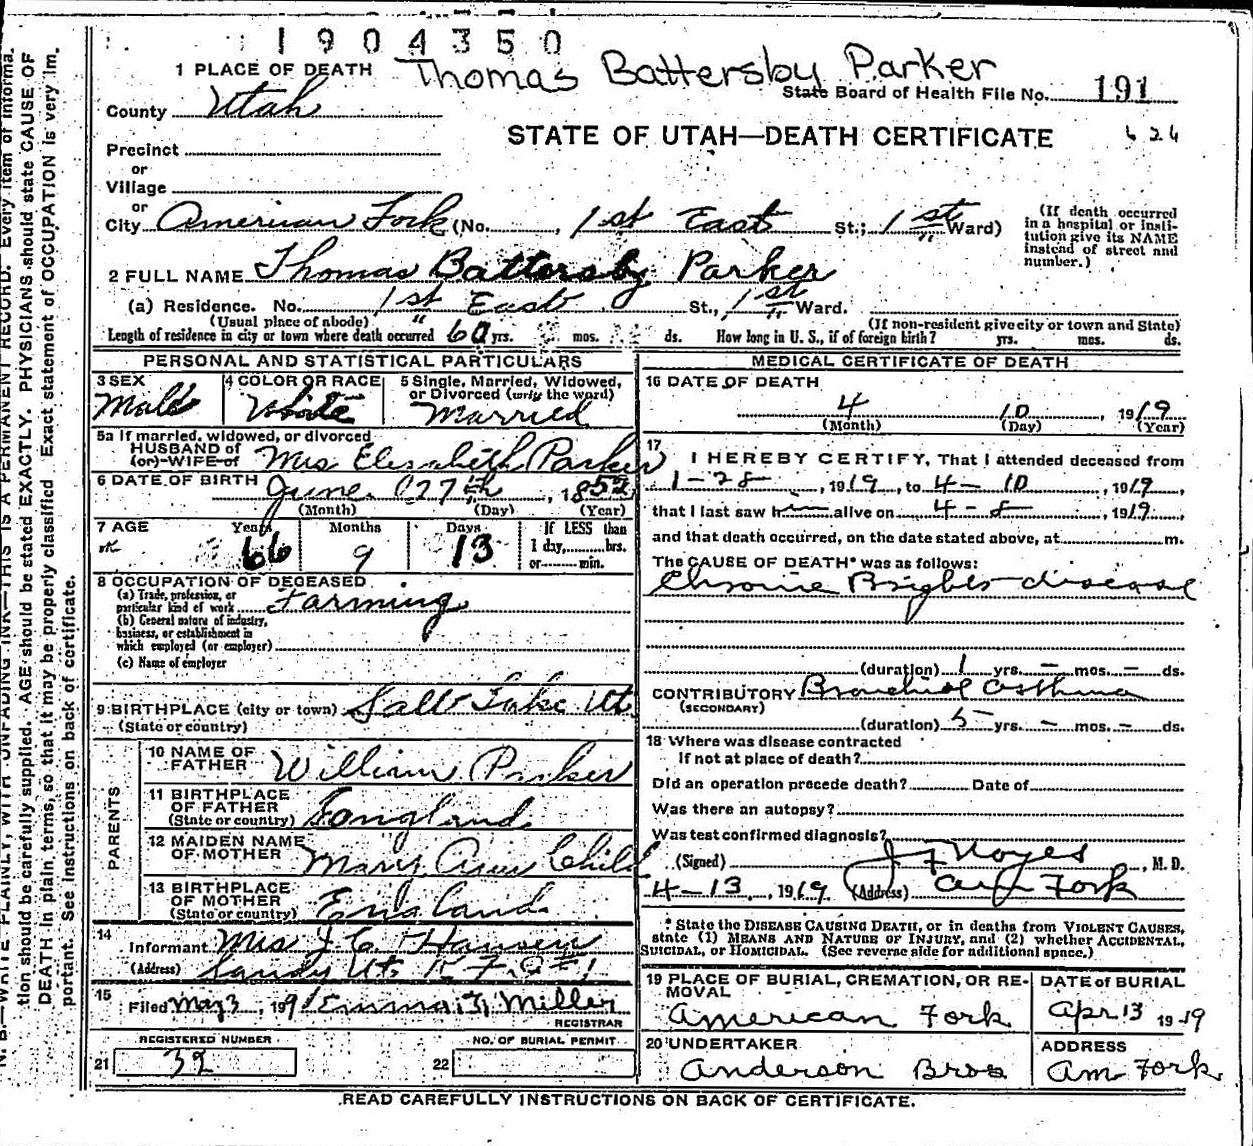 1904350
Thomas Battersby Parker
1 PLACE OF DEATH
State Board of Health File No. 191
County Utah
STATE OF UTAH—DEATH CERTIFICATE
626
Precinct
or
Village
or
City American Fork (No. , 1st East St.; 1st Ward)
(If death occurred in a hospital or insti-
tution give its NAME
instead of street and
number.)
2 FULL NAME Thomas Battersby Parker
(a) Residence. No. 1st East St., 1st Ward.
(Usual place of abode) (If non-resident give city or town and State)
Length of residence in city or town where death occurred 60 yrs. mos. ds. How long in U. S., if of foreign birth? yrs. mos. ds.
PERSONAL AND STATISTICAL PARTICULARS
3 SEX
Male
4 COLOR OR RACE
White
5 Single, Married, Widowed,
or Divorced (write the word)
Married
5a If married, widowed, or divorced
HUSBAND of
(or) WIFE of Mrs Elizabeth Parker
6 DATE OF BIRTH June 27th, 1852
(Month) (Day) (Year)
7 AGE Years Months Days If LESS than
66 9 13 1 day, hrs.
or min.
8 OCCUPATION OF DECEASED
(a) Trade, profession, or
particular kind of work Farming
(b) General nature of industry,
business, or establishment in
which employed (or employer)
(c) Name of employer
9 BIRTHPLACE (city or town) Salt Lake Ut.
(State or country)
PARENTS
10 NAME OF
FATHER William Parker
11 BIRTHPLACE
OF FATHER
(State or country) England
12 MAIDEN NAME
OF MOTHER Mary Ann Child
13 BIRTHPLACE
OF MOTHER
(State or country) England
14
Informant Mrs J C Hansen
(Address) Sandy Ut. R F D #1
15
Filed May 3, 19 Emma F. Miller
REGISTRAR
REGISTERED NUMBER
21 32
NO. OF BURIAL PERMIT
22
MEDICAL CERTIFICATE OF DEATH
16 DATE OF DEATH
4 10, 1919
(Month) (Day) (Year)
17
I HEREBY CERTIFY, That I attended deceased from
1-28, 1919, to 4-10, 1919,
that I last saw h alive on 4-8, 1919,
and that death occurred, on the date stated above, at m.
The CAUSE OF DEATH* was as follows:
Chronic Brights disease
(duration) 1 yrs. – mos. – ds.
CONTRIBUTORY Bronchial asthma
(SECONDARY)
(duration) 5 yrs. – mos. – ds.
18 Where was disease contracted
If not at place of death?
Did an operation precede death? Date of
Was there an autopsy?
Was test confirmed diagnosis?
(Signed) J F Noyes, M. D.
4-13, 1919 (Address) Am Fork
* State the DISEASE CAUSING DEATH, or in deaths from VIOLENT CAUSES,
state (1) MEANS AND NATURE OF INJURY, and (2) whether ACCIDENTAL,
SUICIDAL, or HOMICIDAL. (See reverse side for additional space.)
19 PLACE OF BURIAL, CREMATION, OR RE-
MOVAL
American Fork
DATE of BURIAL
Apr 13 1919
20 UNDERTAKER
Anderson Bros
ADDRESS
Am Fork
READ CAREFULLY INSTRUCTIONS ON BACK OF CERTIFICATE.
N. B.—WRITE PLAINLY, WITH UNFADING INK—THIS IS A PERMANENT RECORD. Every item of informa-
tion should be carefully supplied. AGE should be stated EXACTLY. PHYSICIANS should state CAUSE OF
DEATH in plain terms, so that it may be properly classified. Exact statement of OCCUPATION is very im-
portant. See instructions on back of certificate.